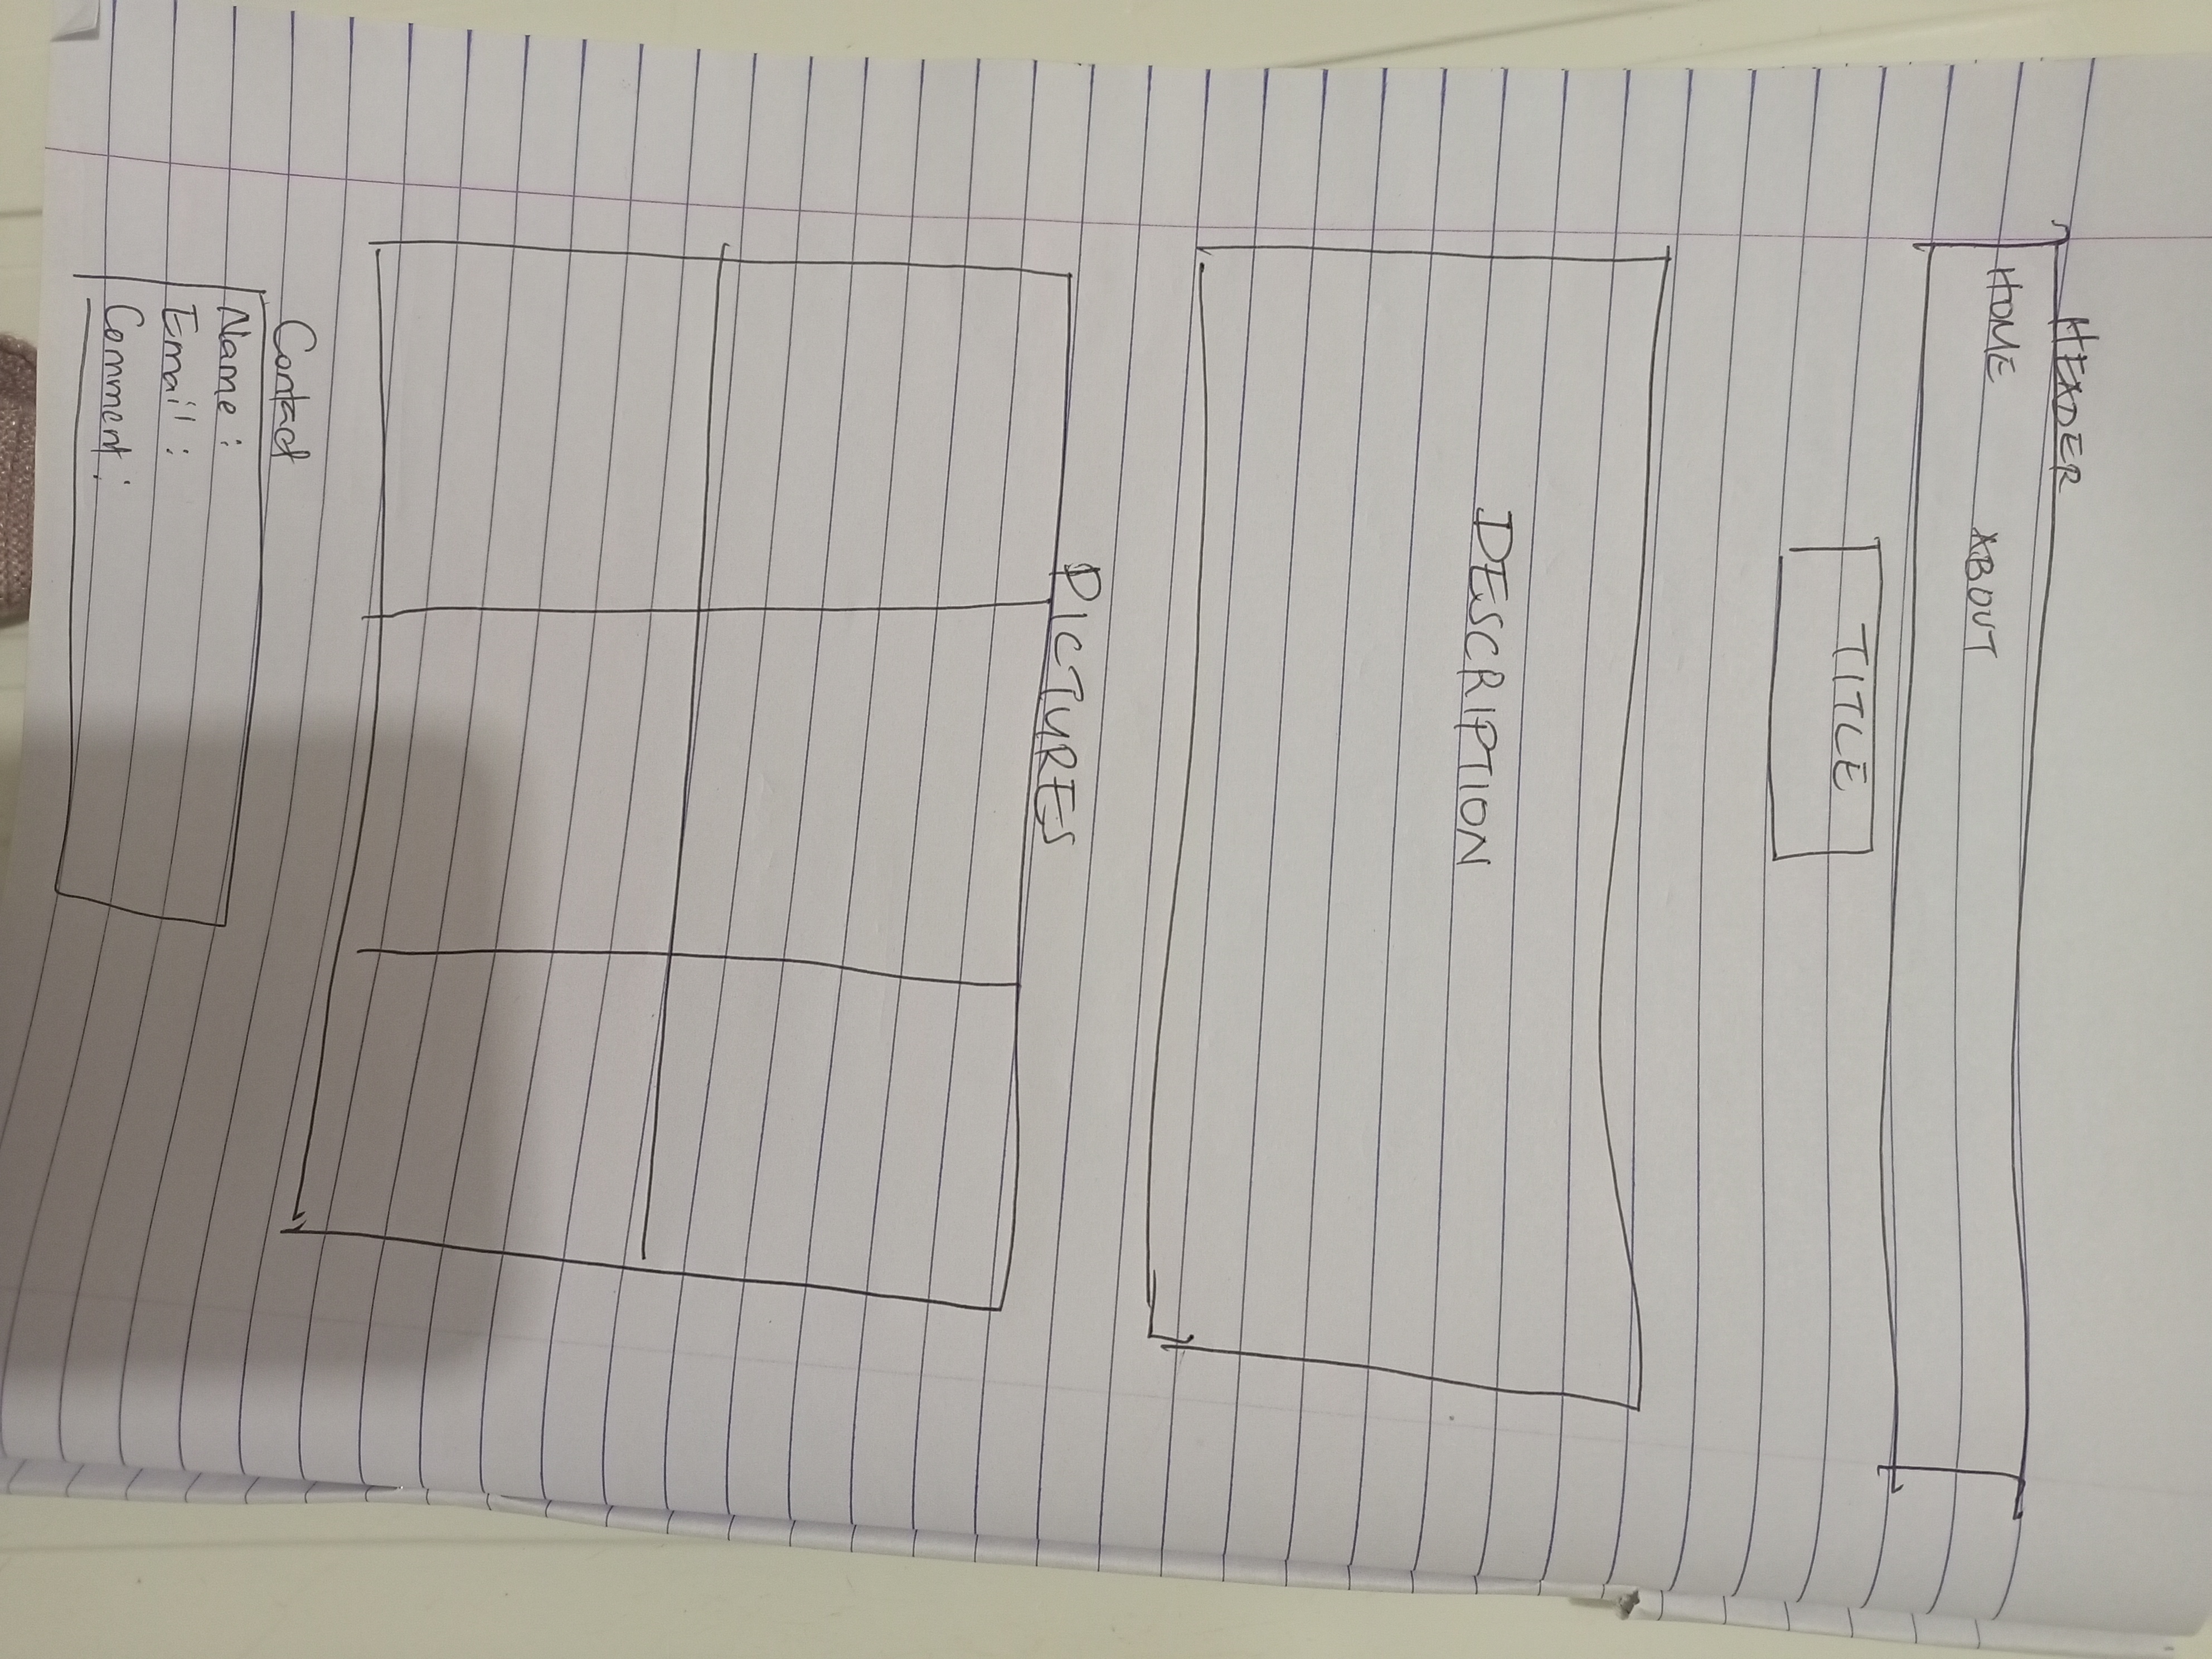 HEADER
HOME ABOUT
TITLE
DESCRIPTION
PICTURES
Contact
Name :
Email :
Comment :